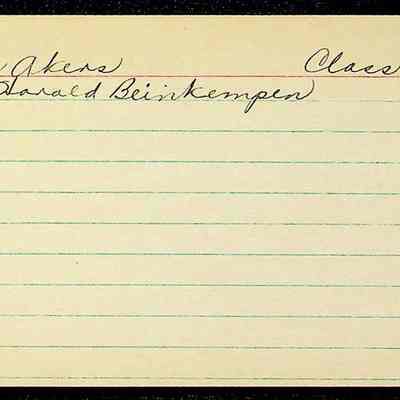 Akers Class
Harald Beinkempen